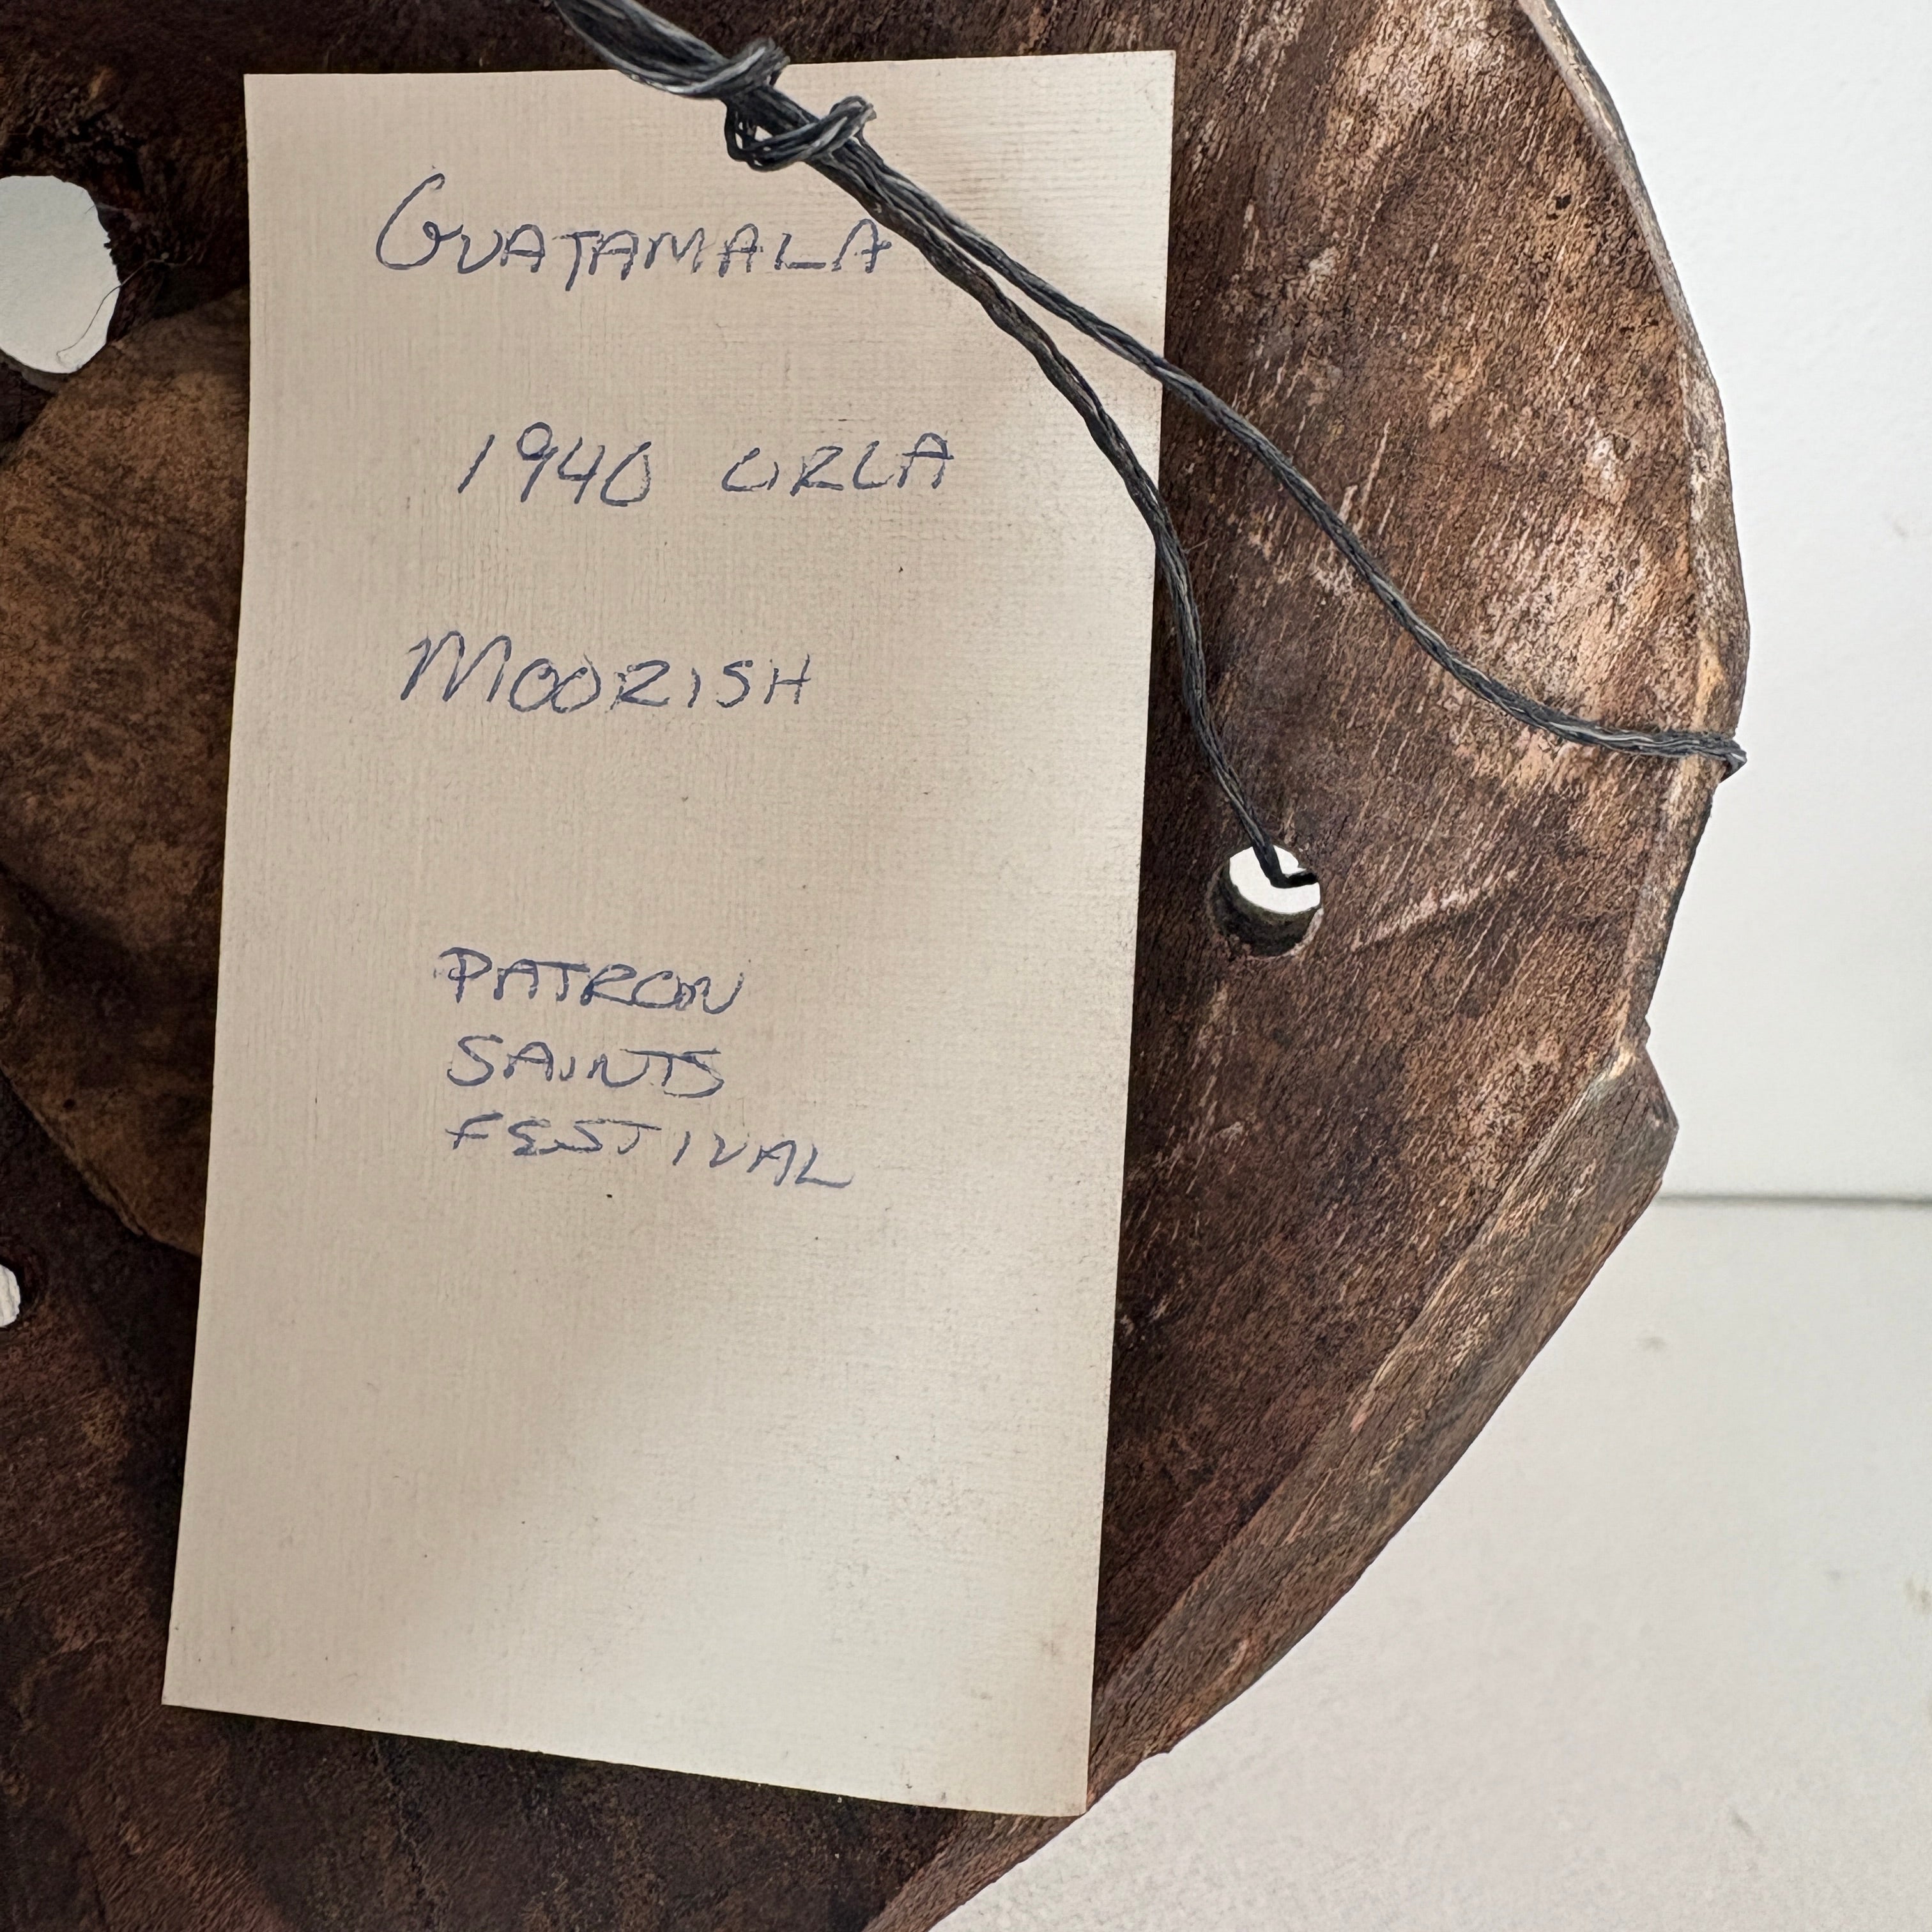 GUATAMALA
1940 CIRCA
MOORISH
PATRON
SAINTS
FESTIVAL